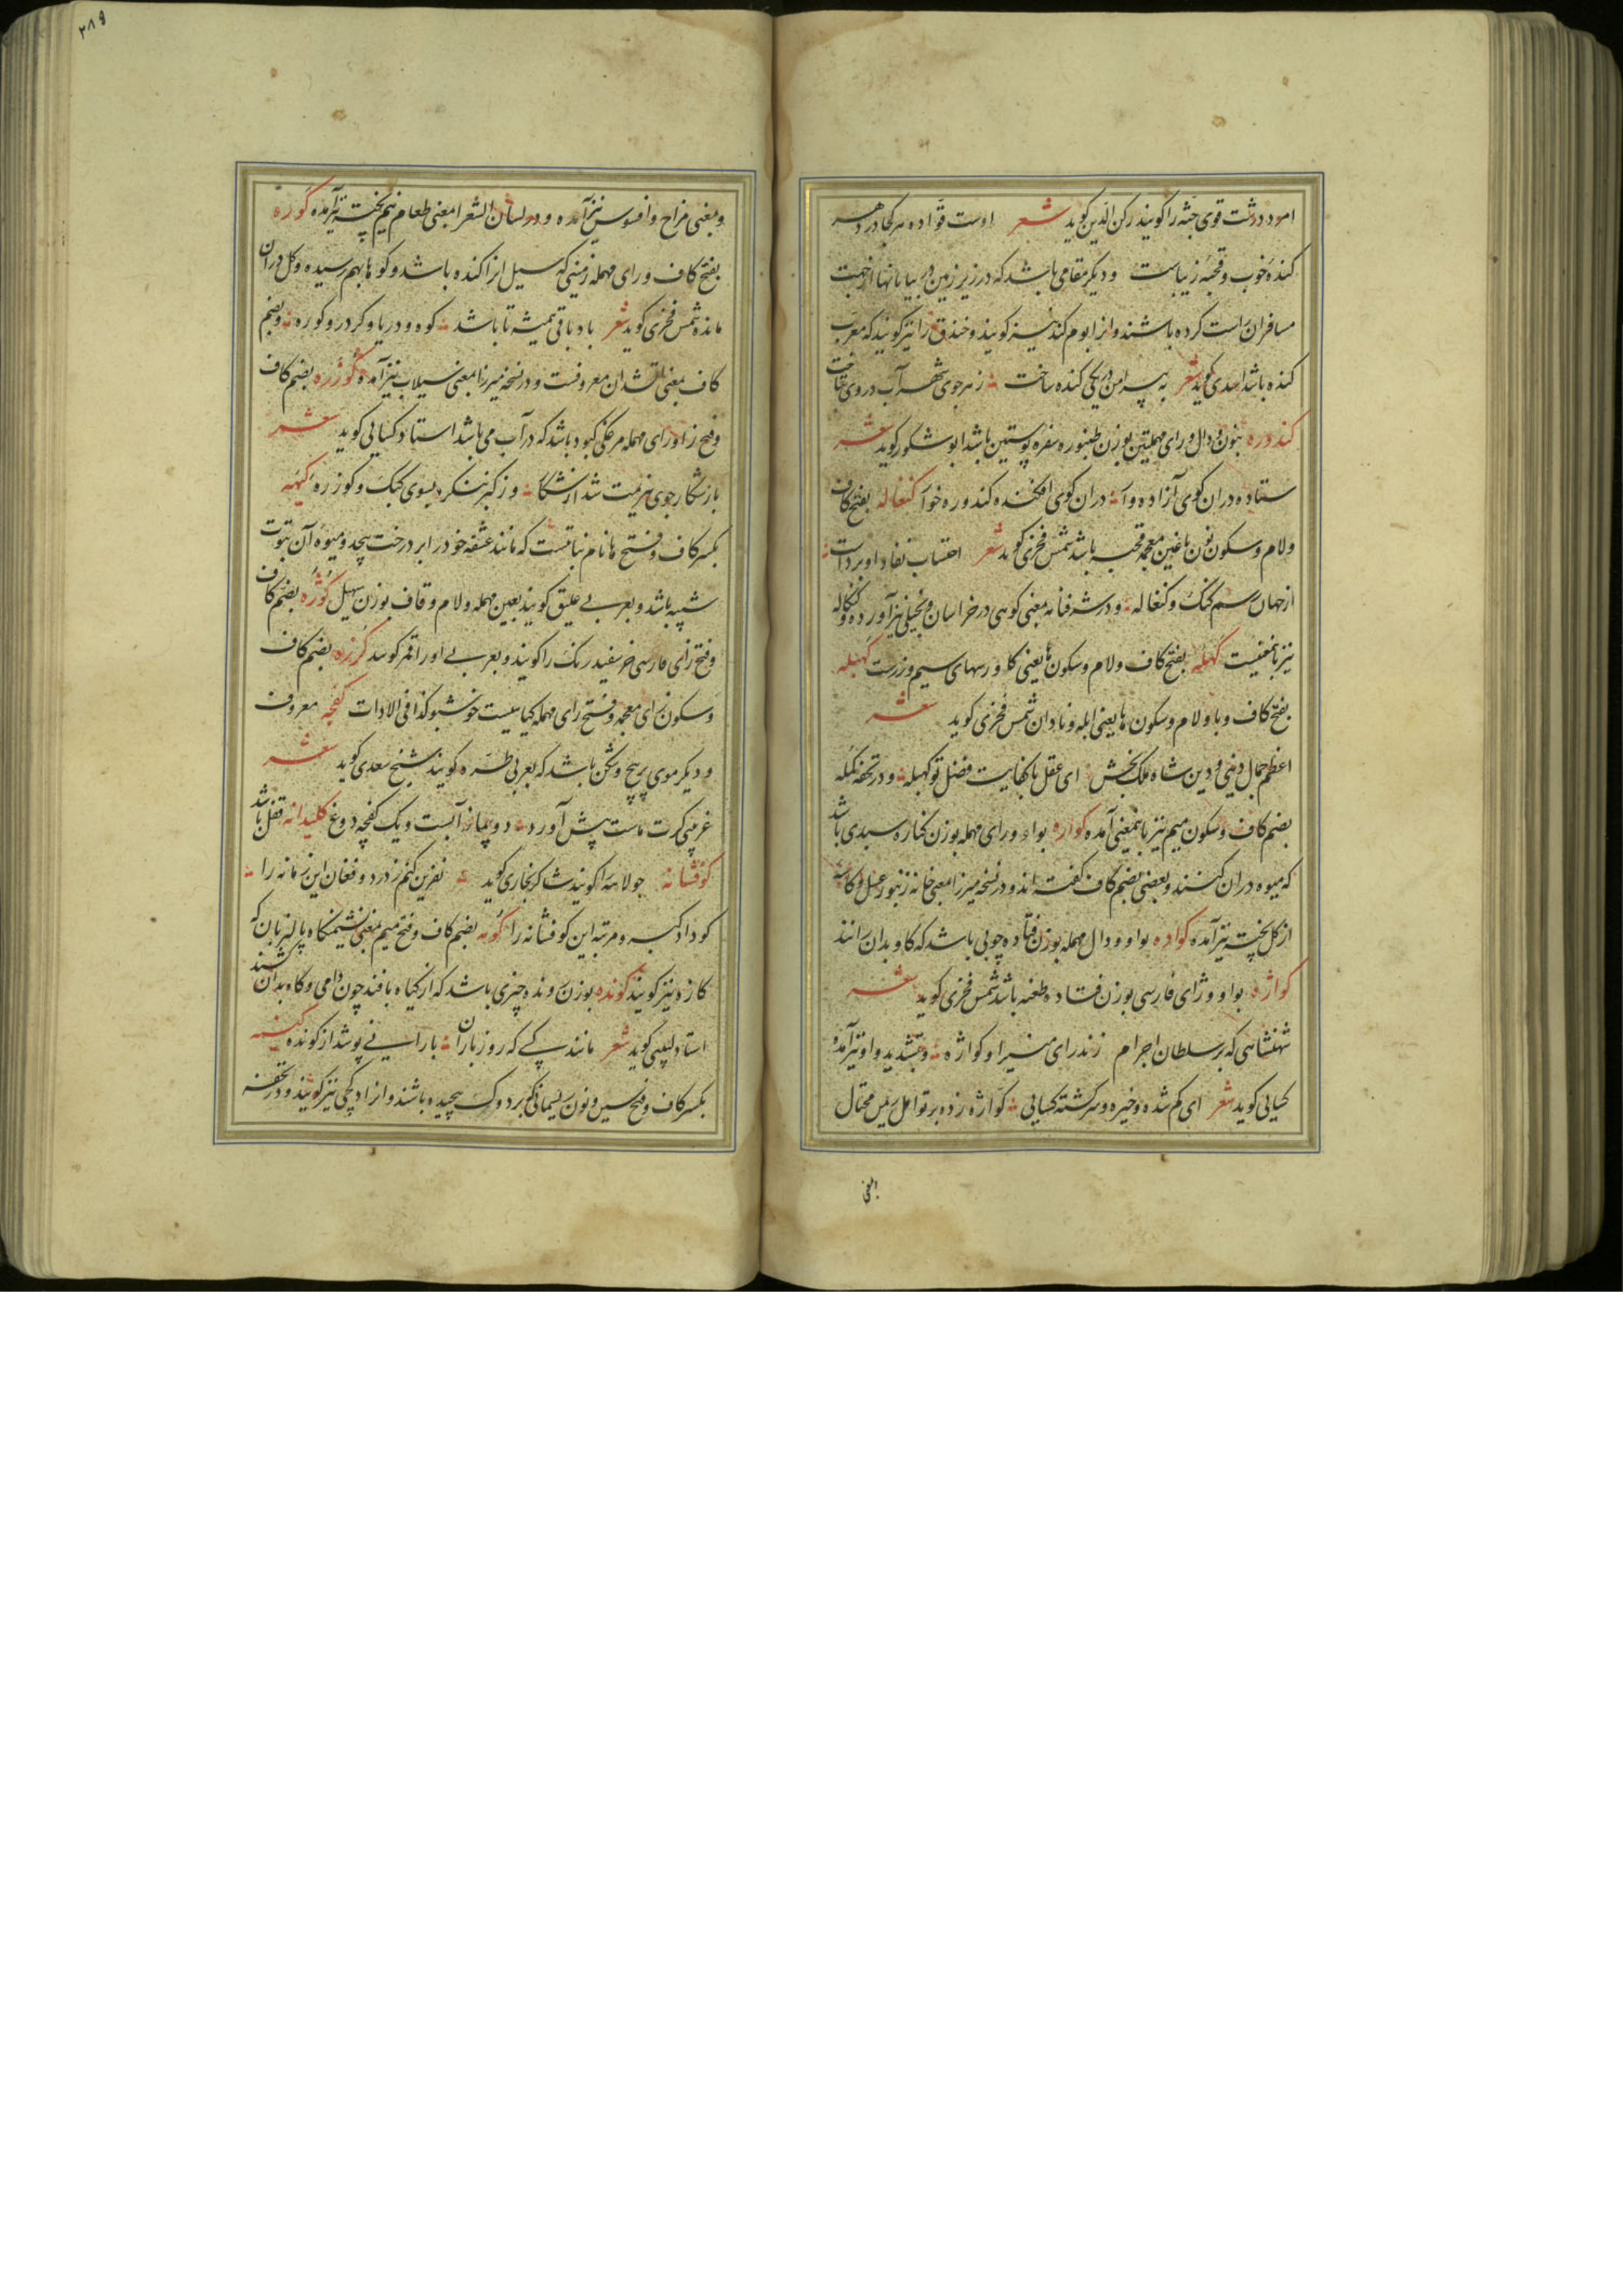 امرد درشت قوی جثه را کویند رکن الدین کوید شعر اوست قواده هر کجا در دهر
کنده خوب و قحبه زیباست و دیکر مقامی باشد که در زیر زمین در بیابانها از جهت
مسافران راست کرده باشند و انرا بوم کند نیز کویند و خندق را نیز کویند که معرب
کنده باشد اسدی کوید شعر به پیرامن دز یکی کنده ساخت ز هر جوی شهر آب در وی
کندوره بنون و دال و رای مهملتین بوزن طنبوره سفره پوستین باشد ابو شکور کوید شعر
ستاده دران کوی آزاده وا دران کوی افکنده کندوره خوا کنغاله بفتح کاف
ولام و سکون نون با غین معجمه قحبه باشد شمس فخری کوید شعر احتساب نفاد او برداشت
از جهان رسم کنک و کنغاله و در شرفنامه بمعنی کوهی در خراسان و بخیلی نیز آورده و کنکاله
نیز بامعنیست کهله بفتح کاف ولام و سکون ها یعنی کلورسهای سیم و زرست کهبله
بفتح کاف و با ولام و سکون ها یعنی ابله و نادان شمس فخری کوید شعر
اعظم جمال دینی و دین شاه ملک بخش ای عقل با کفایت فضل تو کهبله و در تحفه کمله
بضم کاف و سکون میم نیز بامعنی آمده کواره بواو و رای مهمله بوزن کناره سبدی باشد
که میوه دران کنند و بعضی بضم کاف کفته اند و در نسخه میرزا بمعنی خانه زنبور عسل و کاسه
از کل پخته نیز آمده کواده بواو و دال مهمله بوزن فتاده چوبی باشد که کاو بدان رانند
کواژه بواو و ژای فارسی بوزن فتاده طعنه باشد شمس فخری کوید شعر
شهنشاهی که بر سلطان اجرام زند رای منیر او کواژه و بتشدید واو نیز آمده
کسایی کوید شعر ای کم شده و خیره و سرکشته کسایی کواژه زده بر تو امل ریمن محتال
بمعنی
۲۸۹
و بمعنی مزاح و افسوس نیز آمده و در لسان الشعرا بمعنی طعام نیم پخته نیز آمده کوره
بفتح کاف و رای مهمله زمینی که سیل انرا کنده باشد و کوها بهم رسیده و کل دران
مانده شمس فخری کوید شعر باد باقی همیشه تا باشد کوه و دریا و کردر و کوره و بضم
کاف بمعنی اتشدان معروفست و در نسخه میرزا بمعنی سیلاب نیز آمده کوزره بضم کاف
و فتح زا و رای مهمله مرغکی کبود باشد که در آب می باشد استاد کسایی کوید شعر
باز شکار جوی هزیمت شد از شکا وز کبر ننکرد بسوی کبک و کوزره کیهه
بکسر کاف و فتح ها نام نباتیست که مانند عشقه خود را بر درخت پیچد و میوه آن بتوت
شبیه باشد و بعربی علیق کویند بعین مهمله ولام و قاف بوزن سهیل کوژه بضم کاف
و فتح زای فارسی خر سفید رنک را کویند و بعربی او را اقمر کویند کزره بضم کاف
و سکون زای معجمه و فتح رای مهمله کیاهیست خوشبو کذا فی الادات کفچه معروف
و دیکر موی پر پیچ و شکن باشد که بعربی طره کویند شیخ سعدی کوید شعر
غریبی کرت ماست پیش آورد دو پیمانه آبست و یک کفچه دوغ کلیدانه قفل باشد
کوفشانه جولاهه را کویند شاکر بخاری کوید نفرین کنم ز درد و فغان این زمانه را
کو داد کبر و مرتبه این کوفشانه را کومه بضم کاف و فتح میم بمعنی نشیمنکاه پالیزبان که
کازه نیز کویند کونده بوزن رونده چیزی باشد که از کیاه بافند چون دامی و کاه بدان کشند
استاد لبیبی کوید شعر مانند کسی که روز باران بارانی پوشد از کونده کنسه
بکسر کاف و فتح سین و نون ریسمانی که بر دوک پیچیده باشند و انرا دکجی نیز کویند و در تحفه